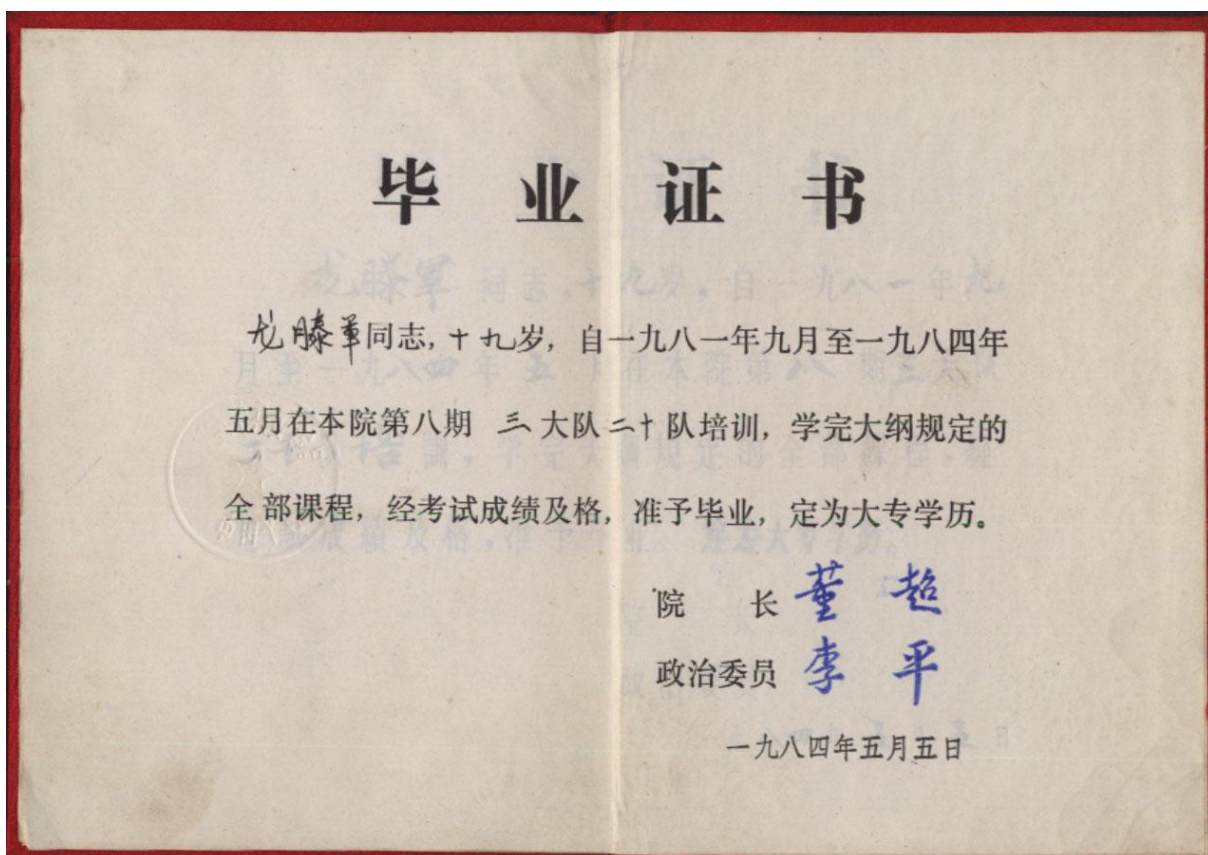 毕业证书
龙滕军同志，十九岁，自一九八一年九月至一九八四年
五月在本院第八期 三大队二十队培训，学完大纲规定的
全部课程，经考试成绩及格，准予毕业，定为大专学历。
院 长 董 超
政治委员 李 平
一九八四年五月五日